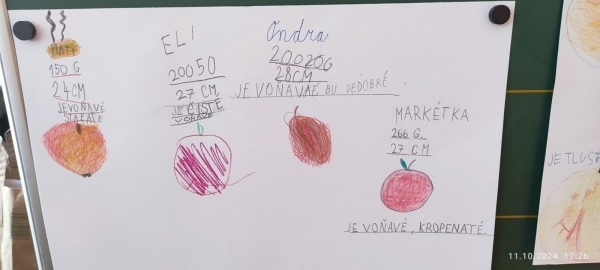 MATY
150 G
24CM
JE VOŇAVÉ
ELI
20050
27 CM
JE ČISTÉ
Ondra
20020G
28CM
JE VOŇAVAÉ BU DEDOBRÉ.
MARKÉTKA
266 G.
27 CM
JE VOŇAVÉ, KROPENATÉ.
JE TLUST
11.10.2024 12:26